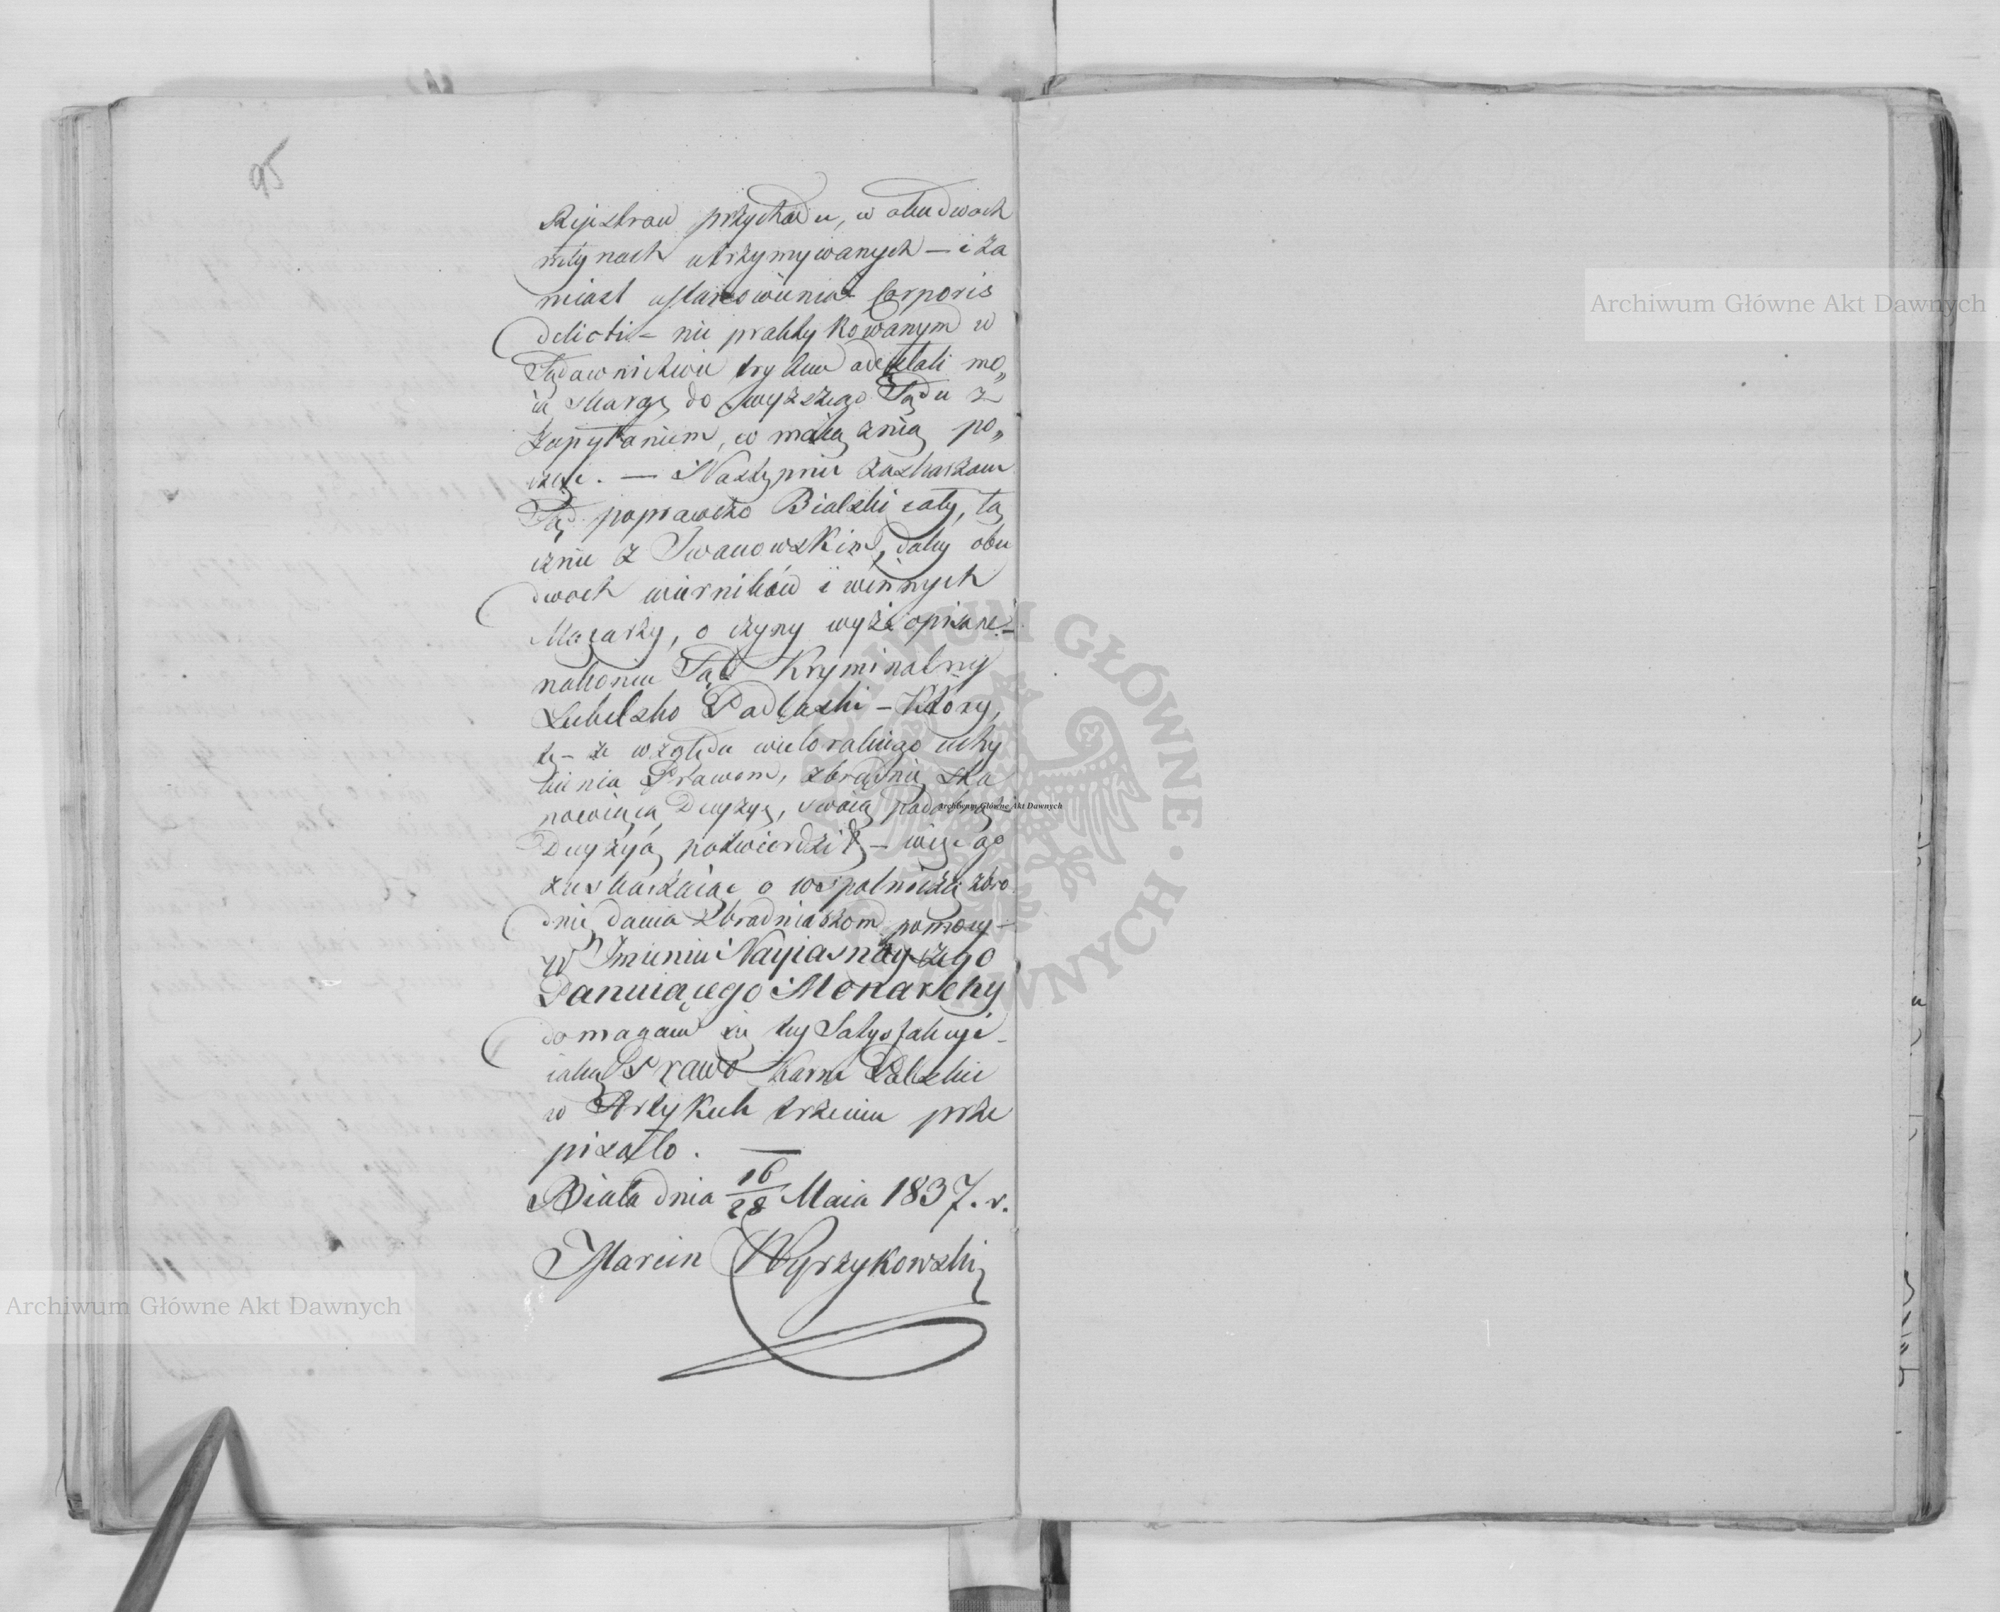 95
Rejestrow przychodu, w obudwoch
młynach utrzymywanych — i za
miast ustanowienia Corporis
delicti – nie praktykowanym w
Sądawnictwie trybem odesłali mo„
ią skargę do wyższego Sądu z
zapytaniem, co maią znią po„
cząć. — Następnie zaskarżam
Sąd poprawczo Bialski cały, łą
cznie z Iwanowskim, daley obu
dwoch mierników i winnych
Mączarzy, o czyny wyżeopisane –
nakoniec Sąd Kryminalny
Lubelsko Podlaski – Który,
tę – ze względu wielorakiego uchy
bienia Prawom, zbrodnię sta
nowiącą Decyzyę, swoią Podobnąż
Decyzyą potwierdził – więc go
zaskarżaiąc o wspolnictwo zbro
dni, dania zbrodniarzom pomocy –
w Imieniu Nayiasnieyszego
Panuiącego Monarchy
domagam się tey Satysfakcyi –
iaką Prawo Karne Polskie
w Artykule trzecim prze
pisało. —
Biała dnia 16/28 Maia 1837. r.
Marcin Wyrzykowski
Archiwum Główne Akt Dawnych
Archiwum Główne Akt Dawnych
Archiwum Główne Akt Dawnych
ARCHIWUM GŁÓWNE AKT DAWNYCH